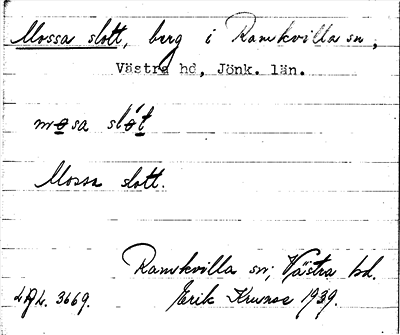 Mossa slott, berg i Ramkvilla sn,
Västra hd, Jönk. län.
mo̲sa slo̲t̲
Mossa slott.
Ramkvilla sn; Västra hd.
Erik 1939.
3669.